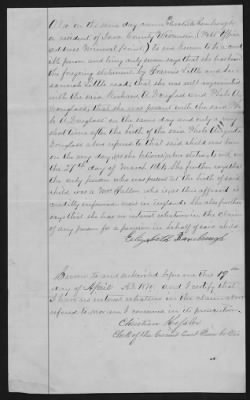 Also on the same day came Elizabeth Kanbrough
a resident of Iowa County Wisconsin (Post Office
address Mineral Point) to me known to be a credi
ble person and being duly sworn says that she has heard
the foregoing statement by Francis Vittle and Su-
sannah Vittle read, that she was well acquainted
with the said Richard B Douglass and Viola A
Douglass, that she was present with the said Viola
A Douglass on the same day and only a very
short time after the birth of the said Viola Augusta
Douglass above referred to that said child was born
on the very day as she believes above stated to wit on
the 27th day of March 1864. She further says that
the only person who was present at the birth of said
child was a Mrs Fuller who is as this affiant is
credibly informed now in England. She also further
says that she has no interest whatever in the claim
of any person for a pension in behalf of said child
Elizabeth Kanbrough
Sworn to and subscribed before me this 19th
day of April A.D. 1870 and I certify that
I have no interest whatever in the claim above
referred to nor am I concerned in its prosecution
Christian
Clerk of the Circuit Court Iowa Co Wis